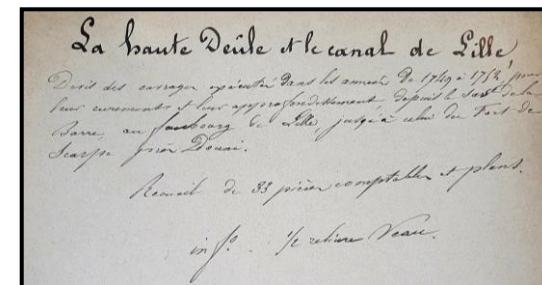 La haute Deûle et le canal de Lille,
Devis des ouvrages exécutés dans les années de 1749 à 1752, pour
leur curement et leur approfondissement, depuis le Sas de la
Barre, au faubourg de Lille, jusqu'à celui du Fort de
Scarpe près Douai.
Recueil de 33 pièces comptables et plans.
in f.o 1/2 reliure Veau.